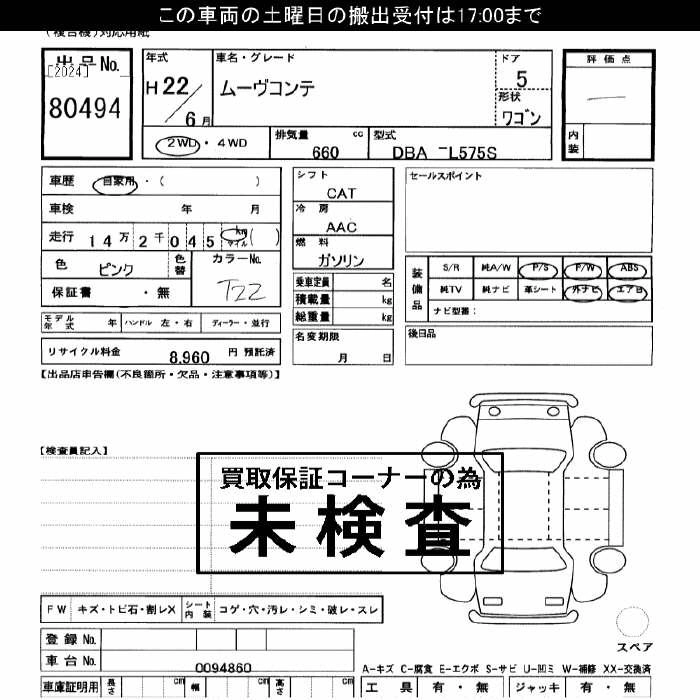 この車両の土曜日の搬出受付は17:00まで
(複合機)対応用紙
出品No.
[2024]
80494
年式
H22/6月
車名・グレード
ムーヴコンテ
ドア
5
形状
ワゴン
評価点
内装
2WD・4WD
排気量 cc
660
型式
DBA -L575S
車歴 自家用・( )
車検 年 月
走行 14万2千045 km マイル ( )
色 ピンク
色替
カラーNo.
T22
保証書 ・無
モデル年式 年 ハンドル 左・右 ディーラー・並行
リサイクル料金 8,960 円 預託済
シフト
CAT
冷房
AAC
燃料
ガソリン
乗車定員 名
積載量 kg
総重量 kg
名変期限
月 日
セールスポイント
装備品
S/R 純A/W P/S P/W ABS
純TV 純ナビ 革シート 外ナビ エアB
ナビ型番:
後日品
【出品店申告欄(不良箇所・欠品・注意事項等)】
【検査員記入】
買取保証コーナーの為
未検査
FW キズ・トビ石・割レX シート内装 コゲ・穴・汚レ・シミ・破レ・スレ
登録No.
車台No. 0094860
車庫証明用 長さ cm 幅 cm 高さ cm
スペア
A-キズ C-腐食 E-エクボ S-サビ U-凹ミ W-補修 XX-交換済
工具 有・無 ジャッキ 有・無